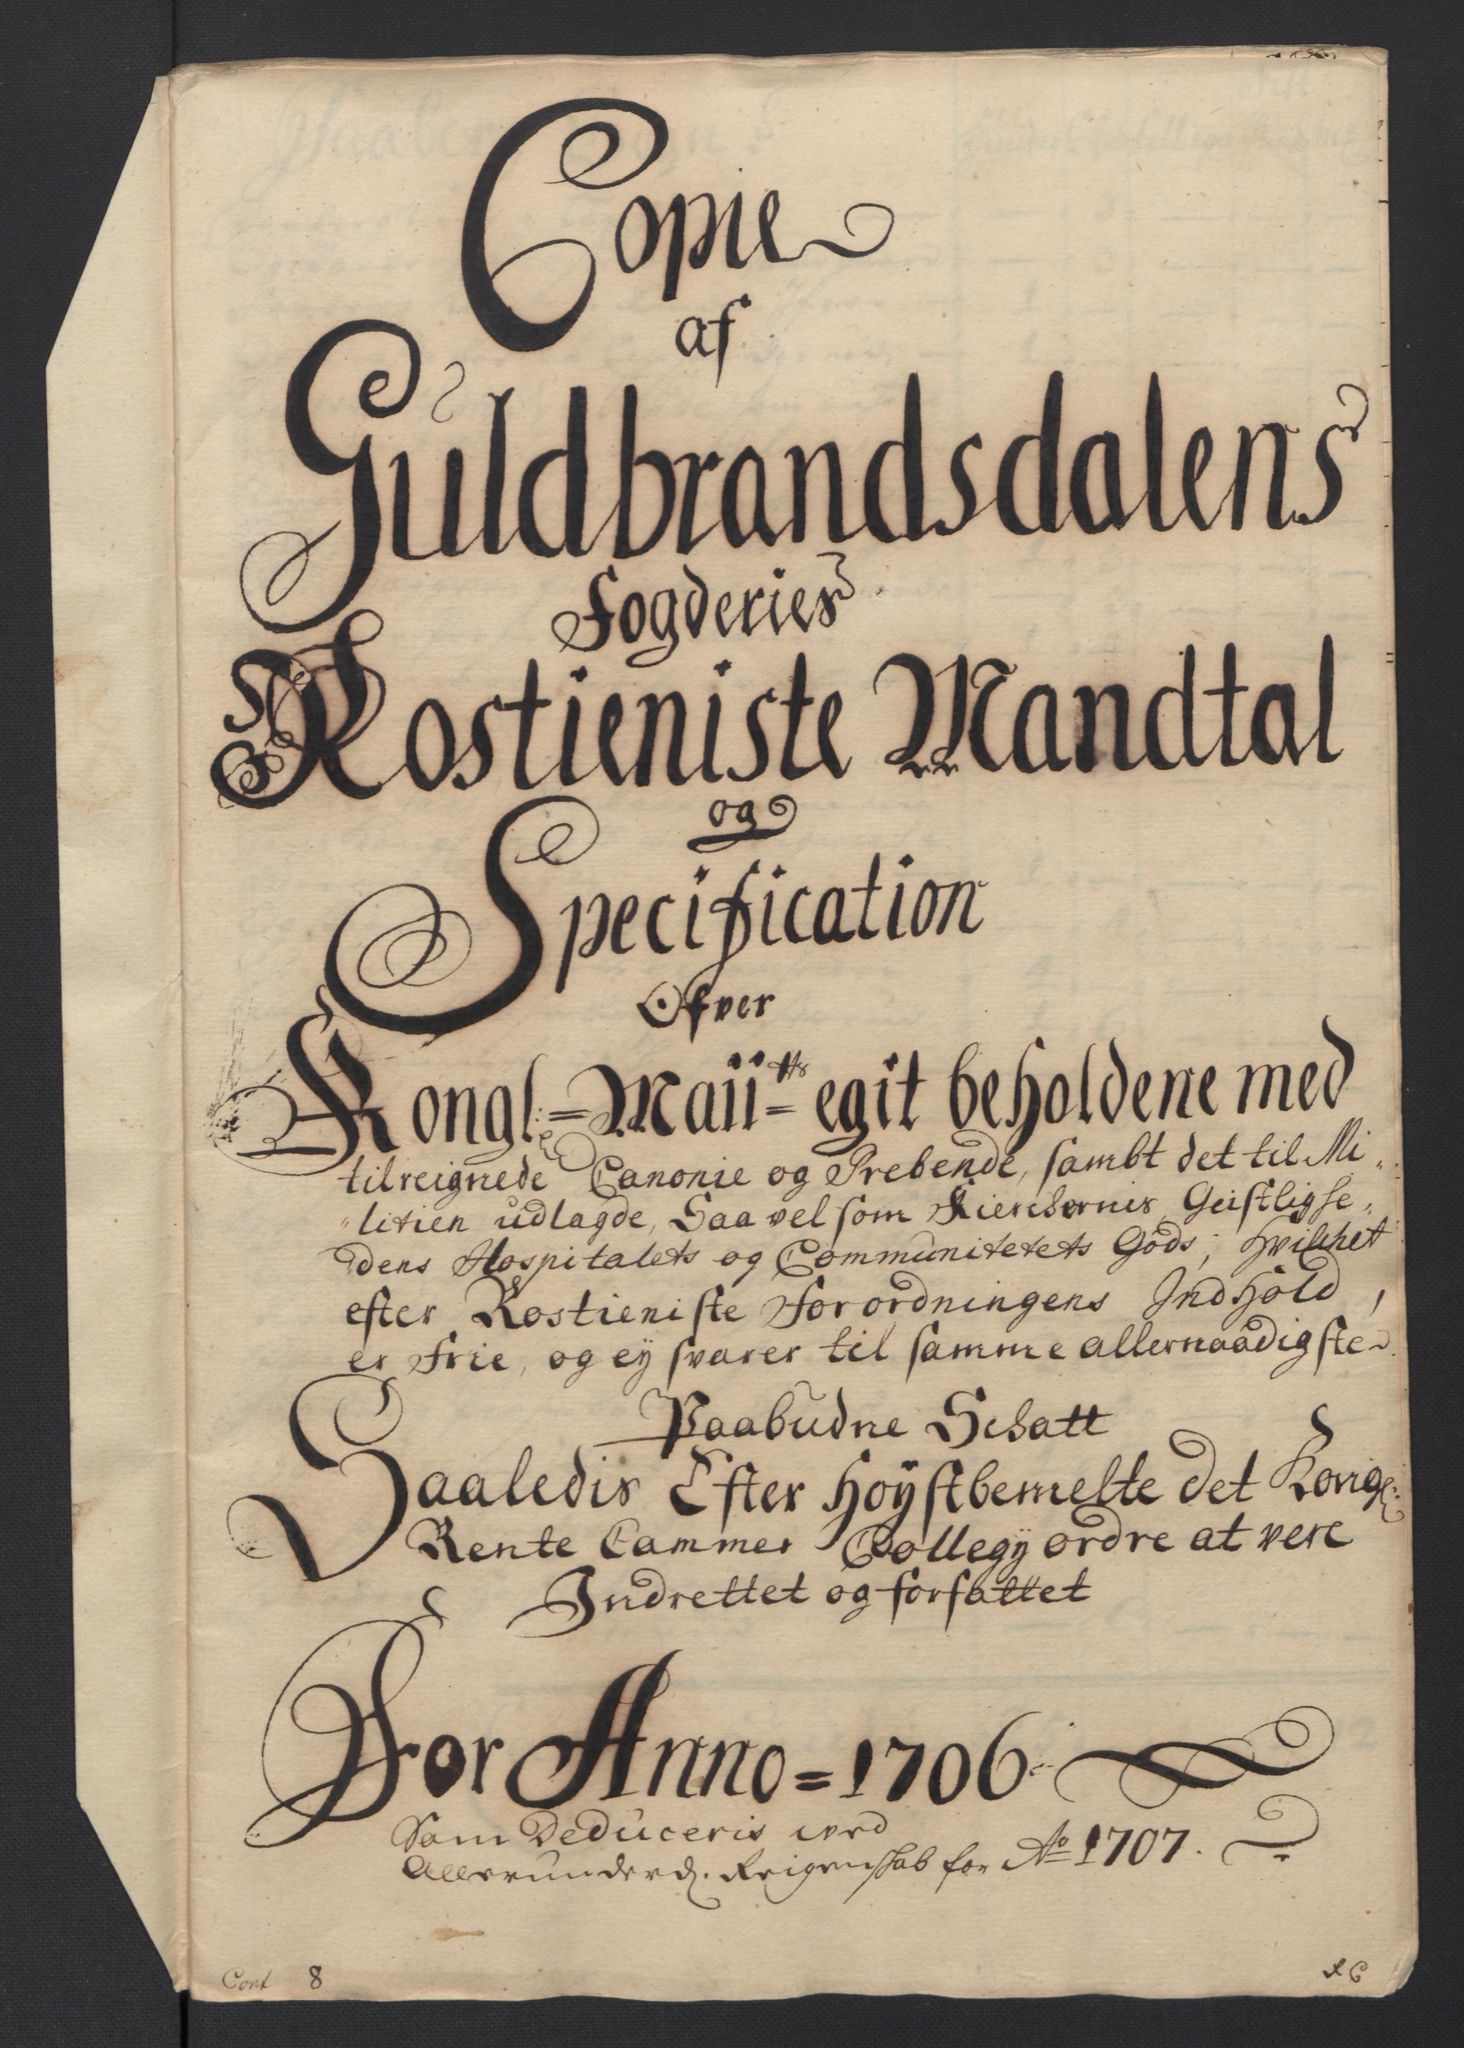 Copie
af
Guldbrandsdalens
Fogderies
Rostieniste Mandtal
og
Specification
Ofver
Kongl: = Maii = tts egit beholdene med
tilreignede Canonie og Prebende, sambt det til Mi„
„litien udlagde, Saavelsom Kierchernis, Geistlighe„
dens Hospitalets og Communitetets Gods, hvilchet
efter Rostieniste Forordningens Indhold,
er Frie, og ey svarer til samme allernaadigste
Paabudne Schatt
Saaledis Efter Høystbemelte det Kongl:
Rente Cammer Collegy ordre at vere
Indrettet og forfattet
For Anno = 1706
Som Deduceris ved
Allerunderd. Reigenskab for Ao 1707.
8